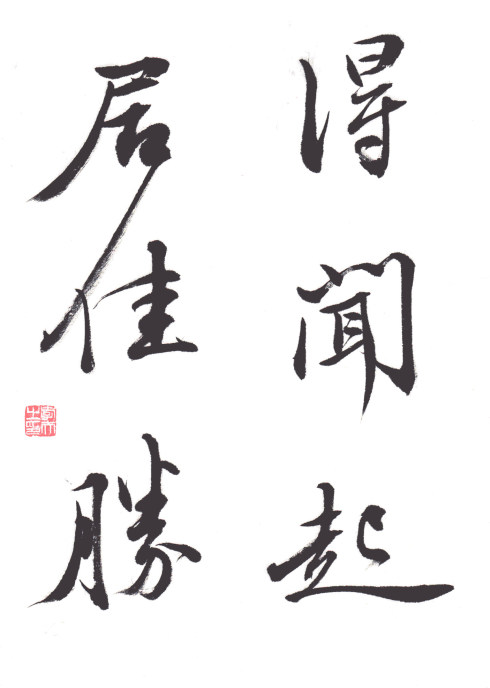 得聞起
居佳勝